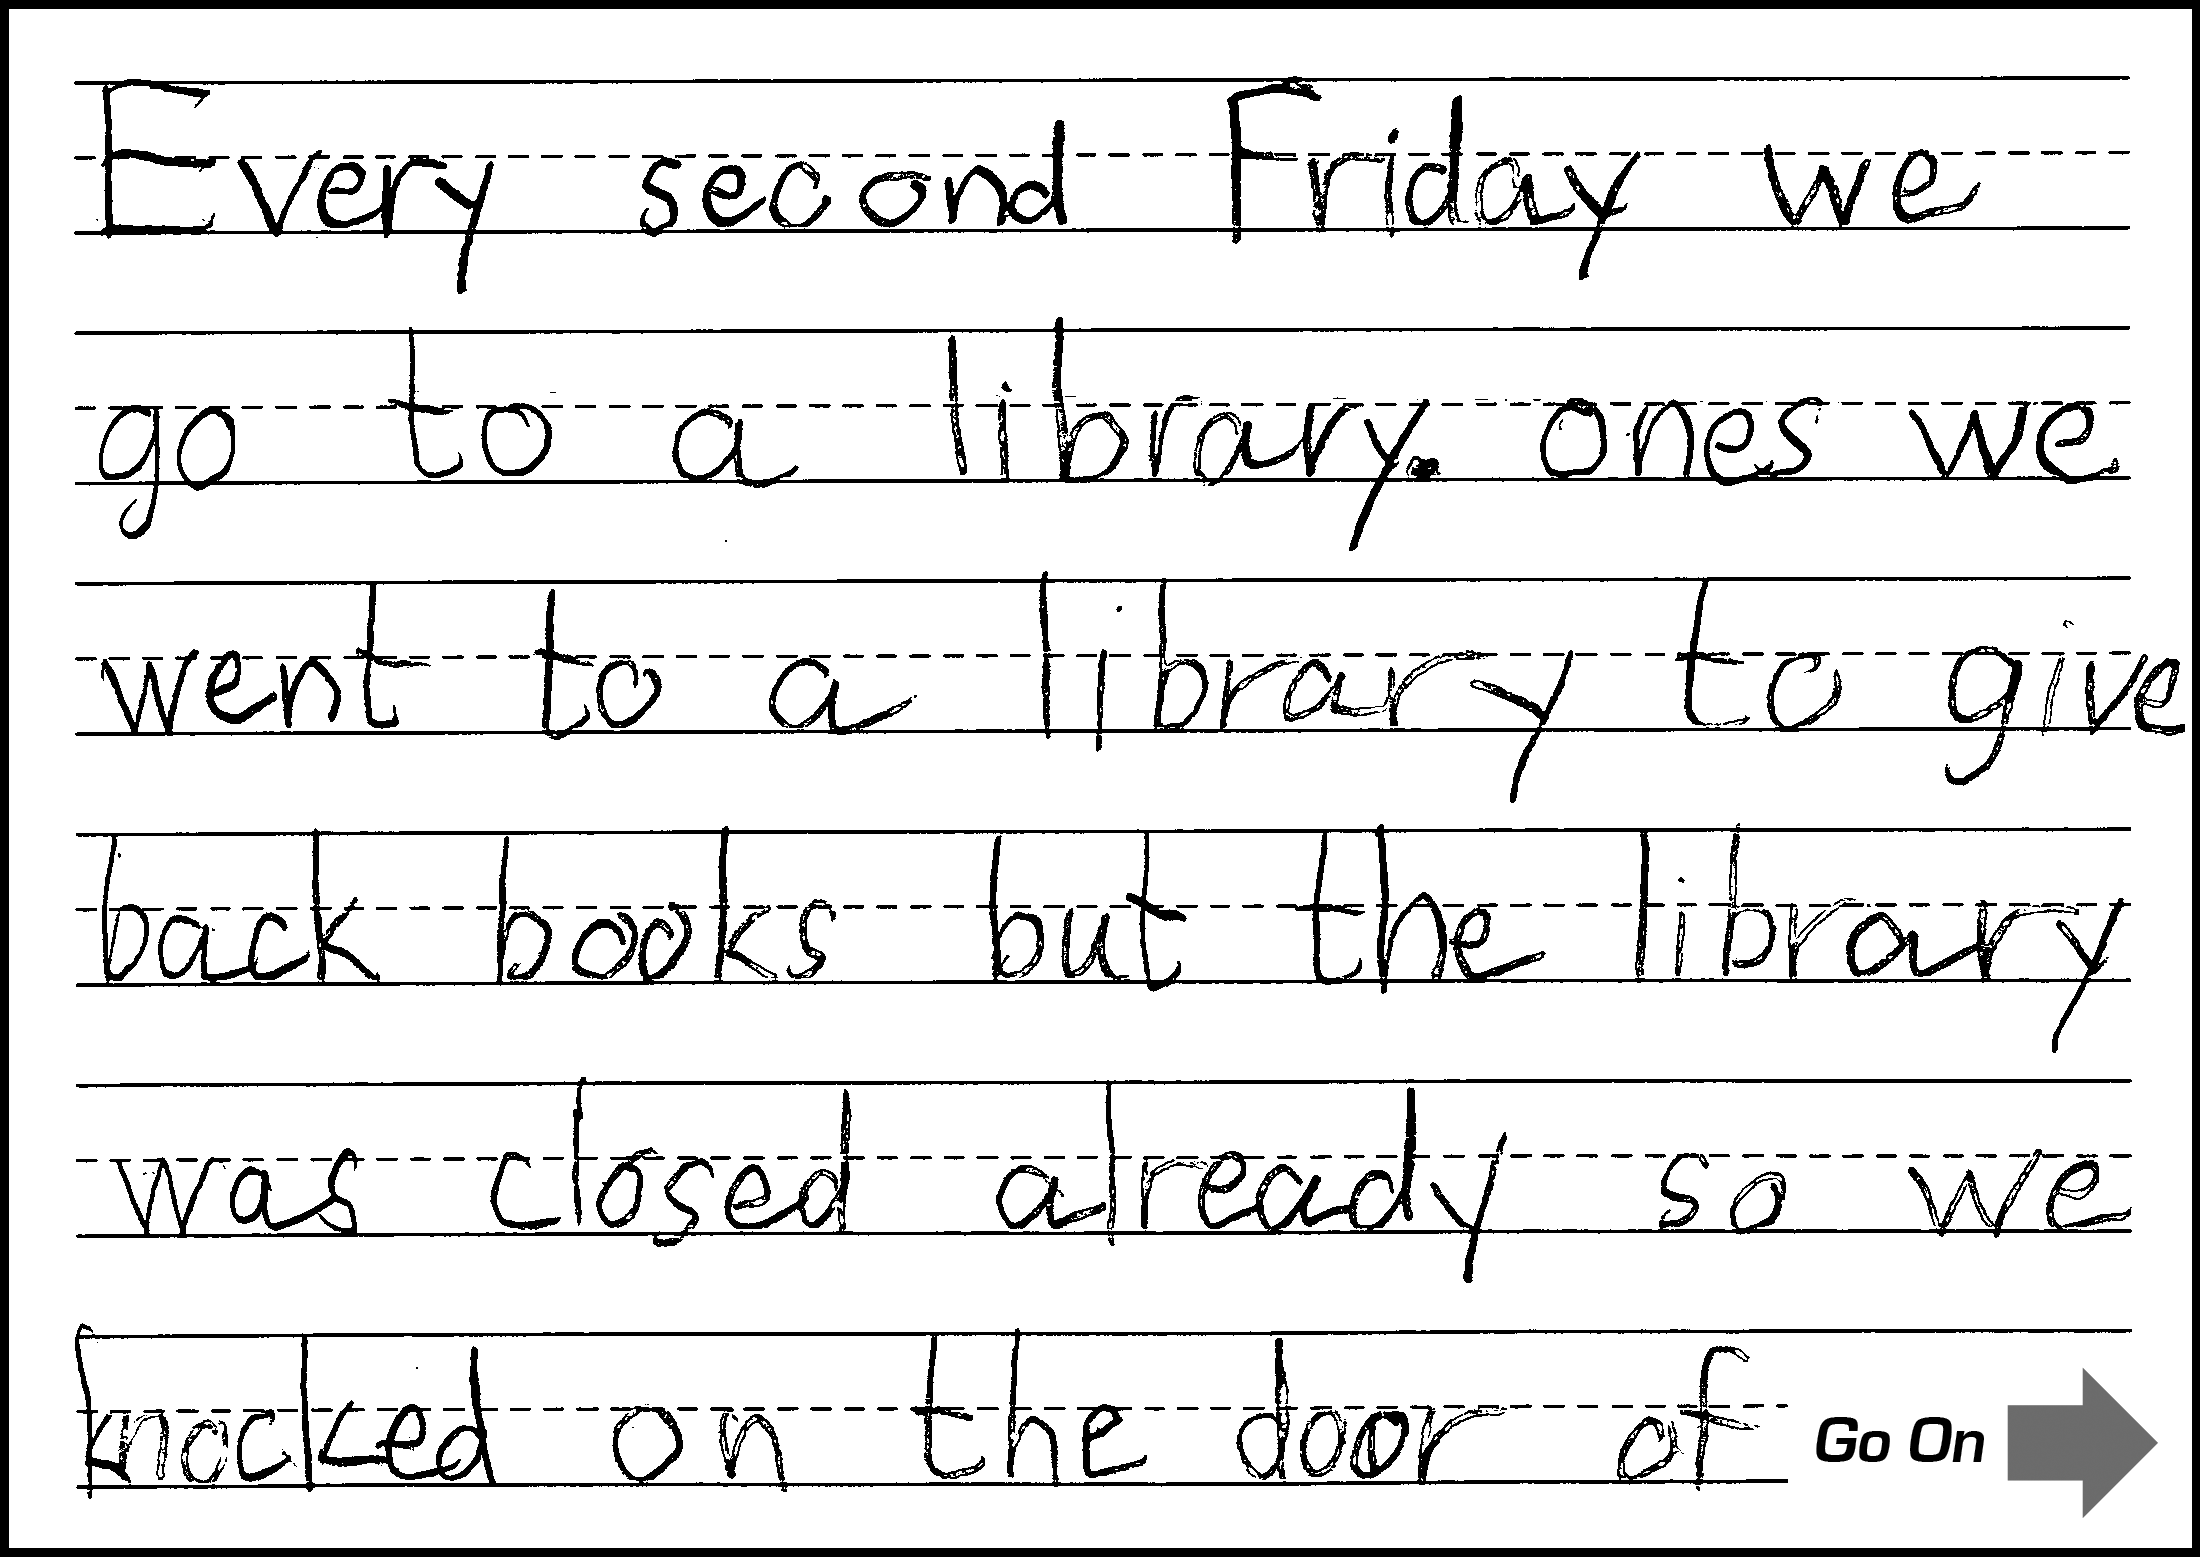 Every second Friday we
go to a library. ones we
went to a library to give
back books but the library
was closed already so we
knocked on the door of
Go On